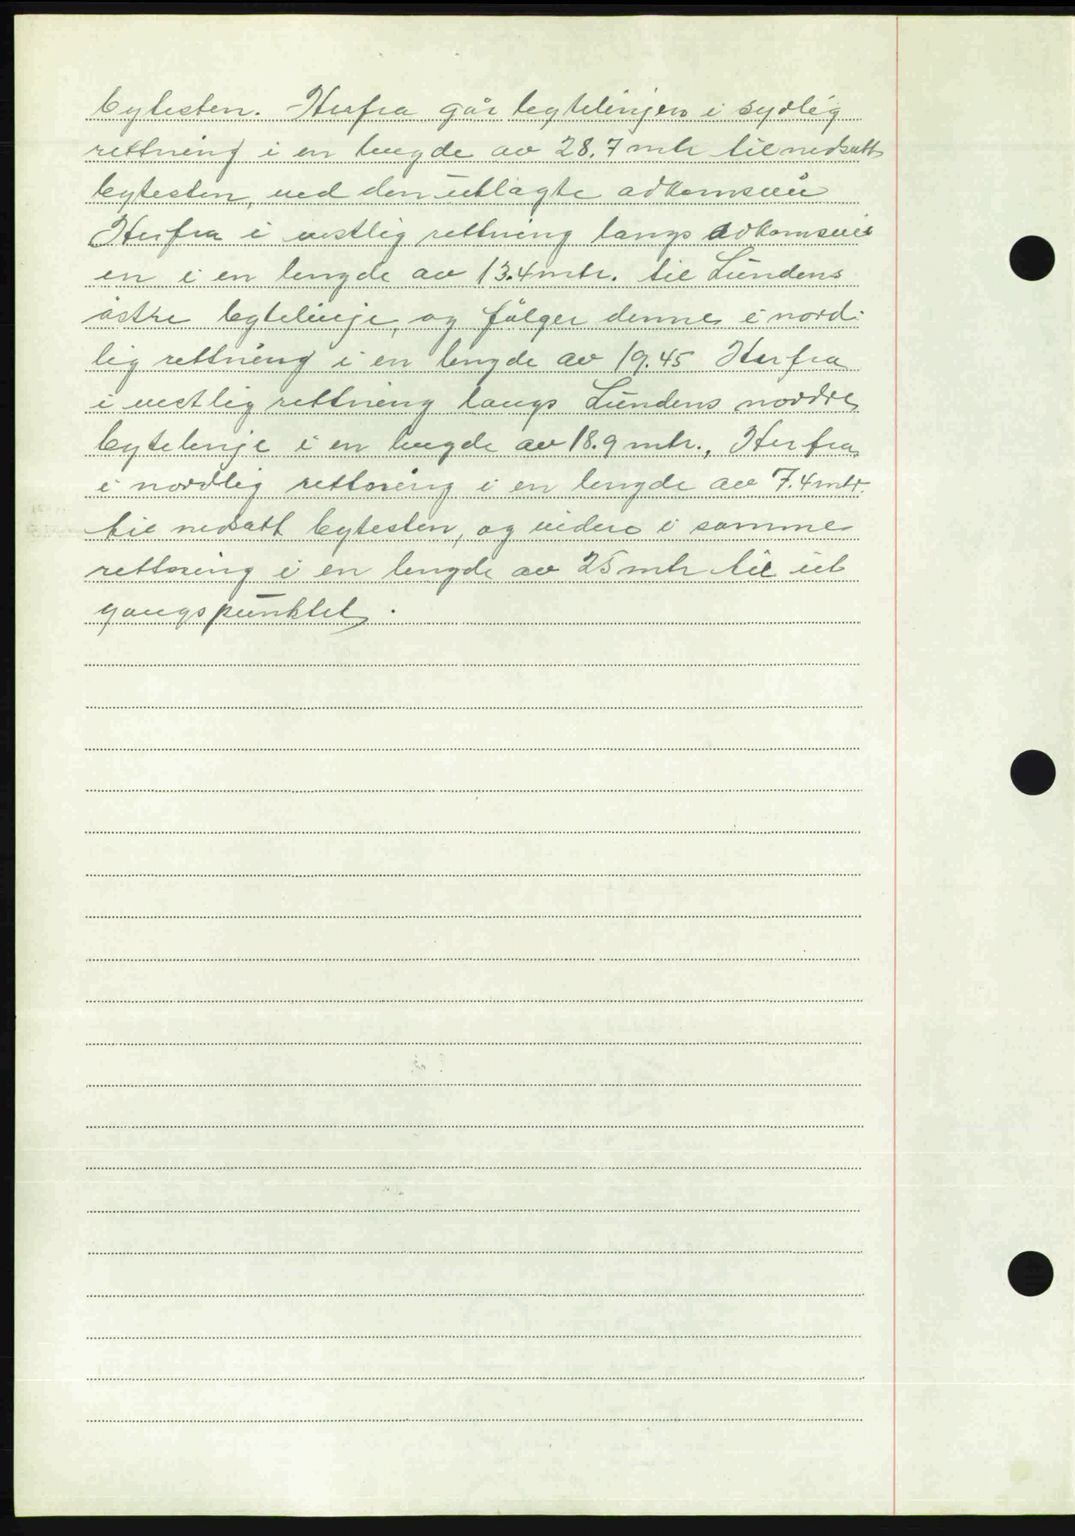 bytesten. Herfra går bytelinjen i sydlig
rettning i en lengde av 28.7 mtr til nedsatt
bytesten, ved den utlagte adkomsvei
Herfra i vestlig rettning langs advkomsvei
en i en lengde av 13.4 mtr. til Lundens
østre bytelinje, og følger denne i nord-
lig rettning i en lengde av 19.45 Herfra
i vestlig rettning langs Lundens nordre
bytelinje i en lengde av 18.9 mtr., Herfra
i nordlig rettning i en lengde av 7.4 mtr.
til nedsatt bytesten, og videre i samme
rettning i en lengde av 25 mtr til ut
gangspunktet.